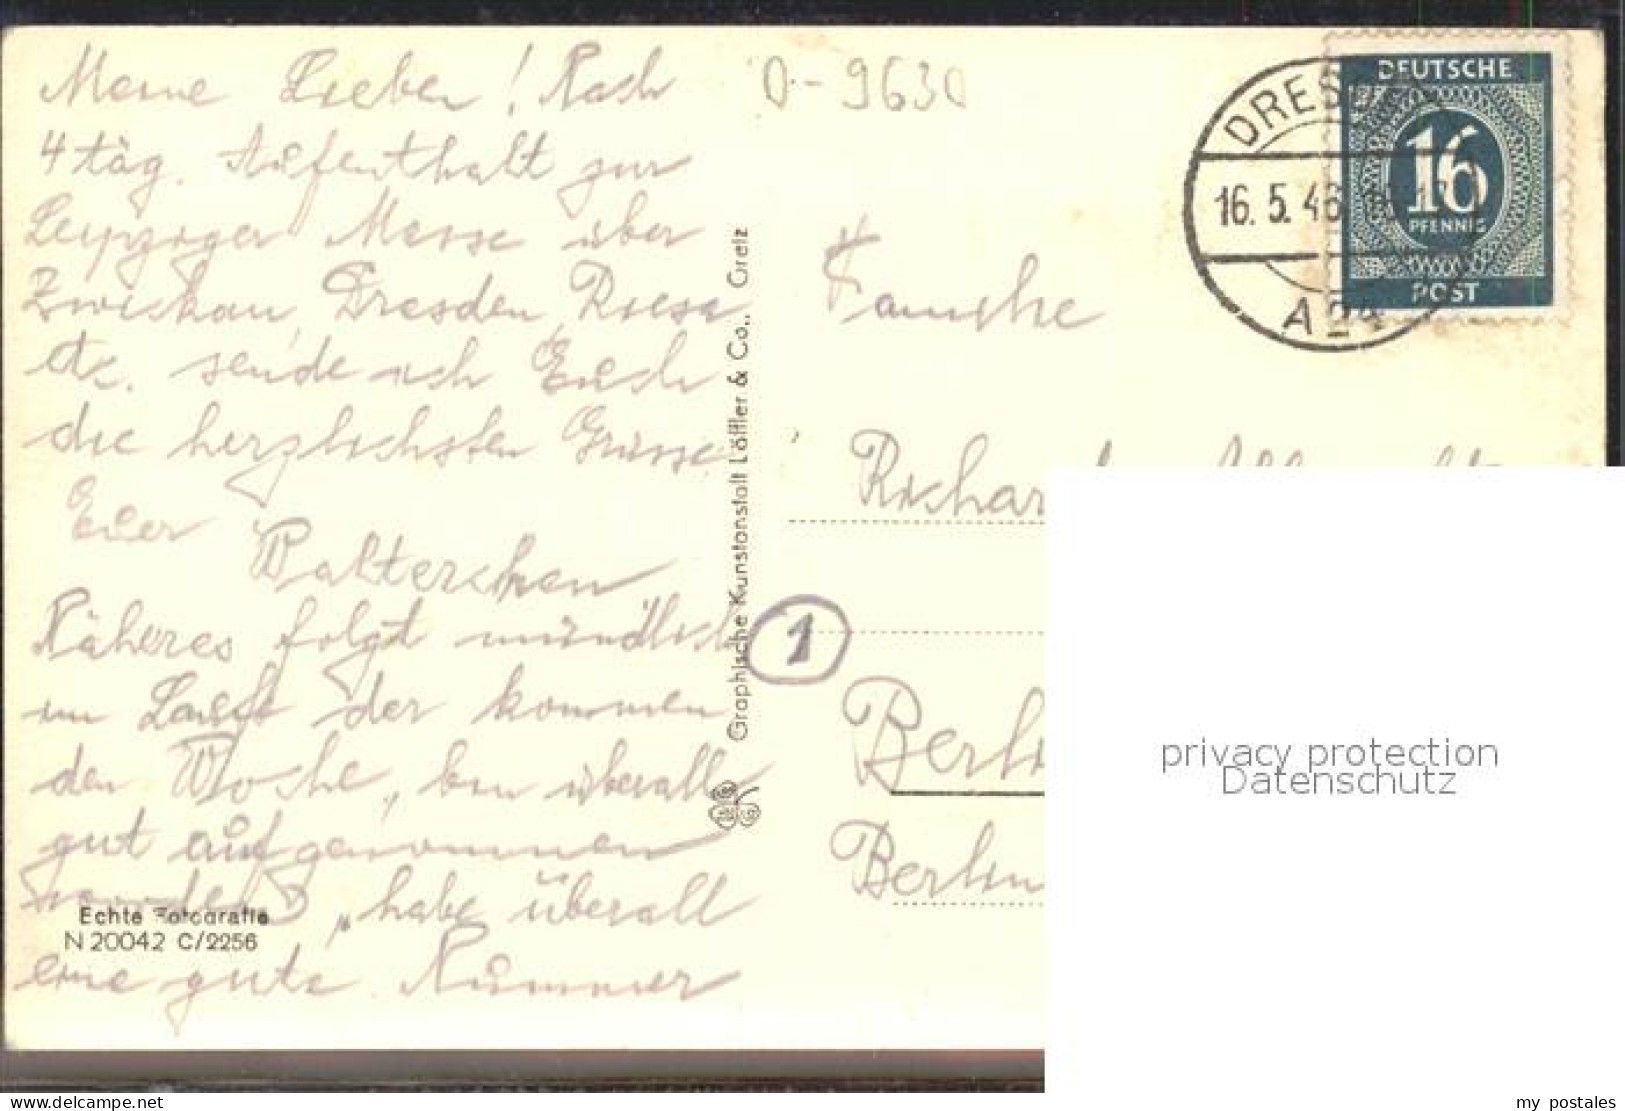 Meine Lieben! Nach
4 täg. Aufenthalt zur
Leipziger Messe über
Zwickau, Dresden, Riesa
etc. sende ich Euch
die herzlichsten Grüsse
Euer
Walterchen
Näheres folgt mündlich
im Laufe der kommen
den Woche, bin überall
gut aufgenommen
worden, habe überall
eine gute Nummer
Echte Fotografie
N 20042 C/2256
Graphische Kunstanstalt Löffler & Co., Greiz
0-9630
DRESDEN
16.5.46
A 24
DEUTSCHE
16
PFENNIG
POST
Familie
Richar
1
Berli
Berlin
privacy protection
Datenschutz
www.delcampe.net
my_postales